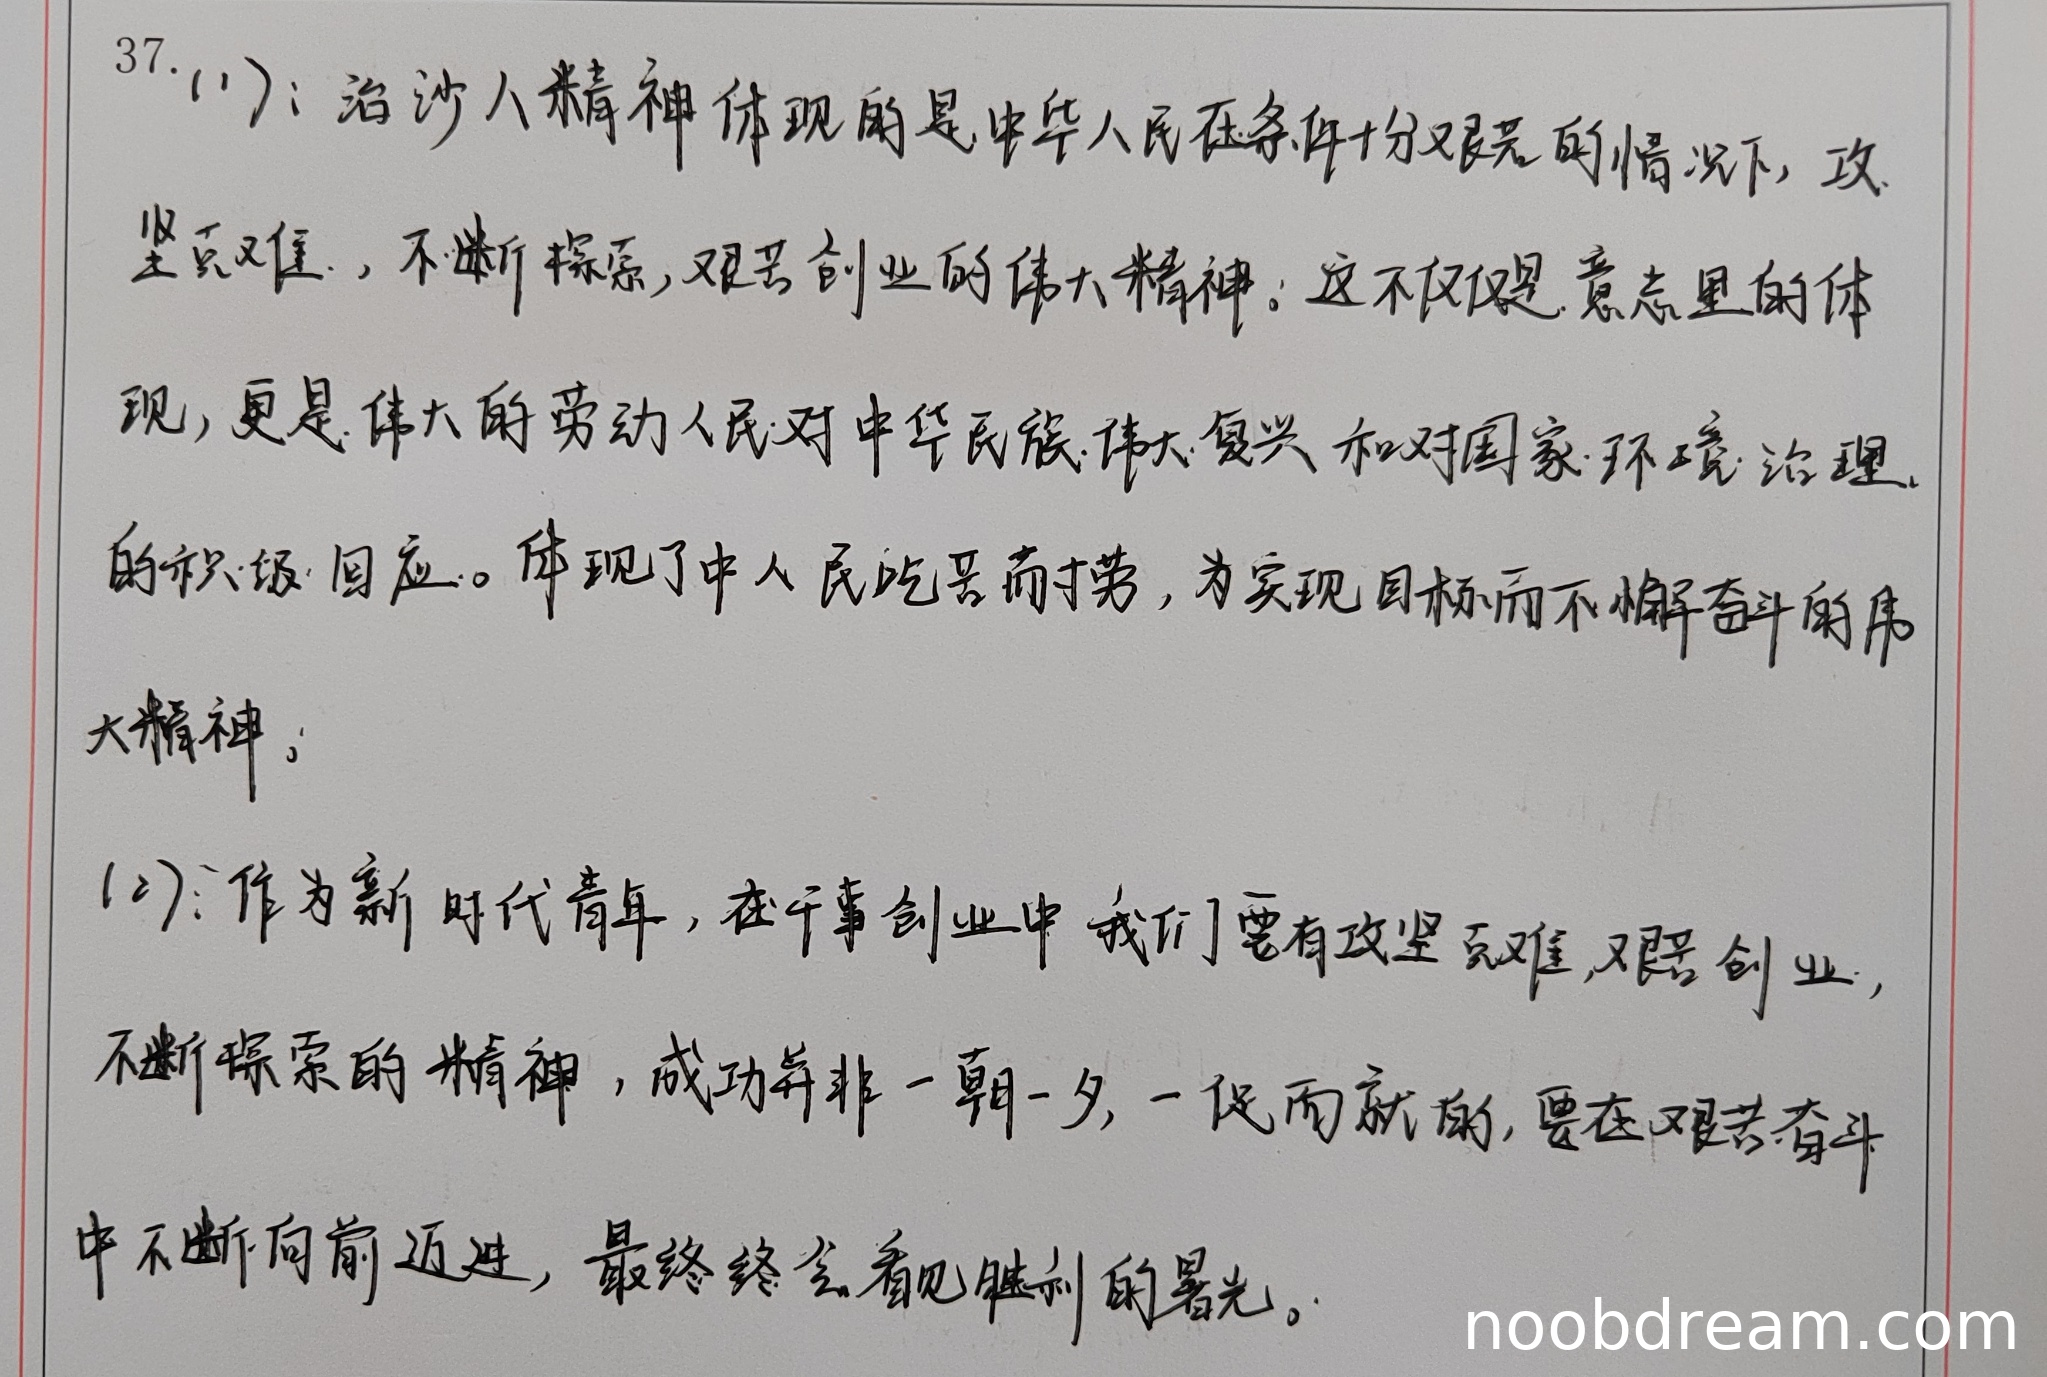 37.(1)：治沙人精神体现的是中华人民在条件十分艰苦的情况下，攻
坚克难，不断探索，艰苦创业的伟大精神。这不仅仅是意志里的体
现，更是伟大的劳动人民对中华民族伟大复兴和对国家环境治理
的积极回应。体现了中人民吃苦而才劳，为实现目标而不懈奋斗的伟
大精神；
(2)：作为新时代青年，在干事创业中我们要有攻坚克难，艰苦创业，
不断探索的精神，成功并非一朝一夕，一促而就的，要在艰苦奋斗
中不断向前迈进，最终终会看见胜利的暑光。
noobdream.com